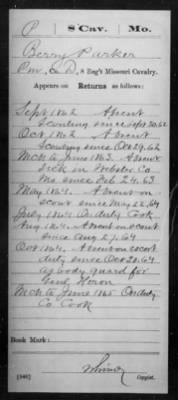 P 8 Cav. Mo.
Berry Parker
Co. D, 8 Reg't Missouri Cavalry.
Appears on Returns as follows:
Sept 1862 Absent
Scouting since Sept 30, 62
Oct 1862 Absent
Scouting since Oct 29, 62
Mch to June 1863. Absent
Sick in Webster Co
Mo. since Feb 24, 63
May 1864. Absent on
scout since May 22, 64
July 1864 On duty Cook
Aug 1864. Absent on scout
since Aug 27, 64
Oct 1864. Absent on escort
duty since Oct 20, 64
as body guard for
Genl Heron
Mch to June 1865 On duty
Co Cook
Book Mark:
(546)
Copyist.